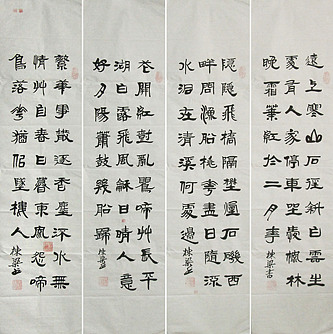 遠上寒山石徑斜白雲生
處有人家停車坐愛楓林
晚霜葉紅於二月華
棟梁書
隱隱飛橋隔野煙石磯西
畔問漁船桃花盡日隨流
水洞在清溪何處邊
棟梁書
花開紅樹亂鶯啼草長平
湖白鷺飛風和日晴人意
好夕陽簫鼓幾船歸
棟梁書
繁華事散逐香塵流水無
情草自春日暮東風怨啼
鳥落花猶似墜樓人
棟梁書